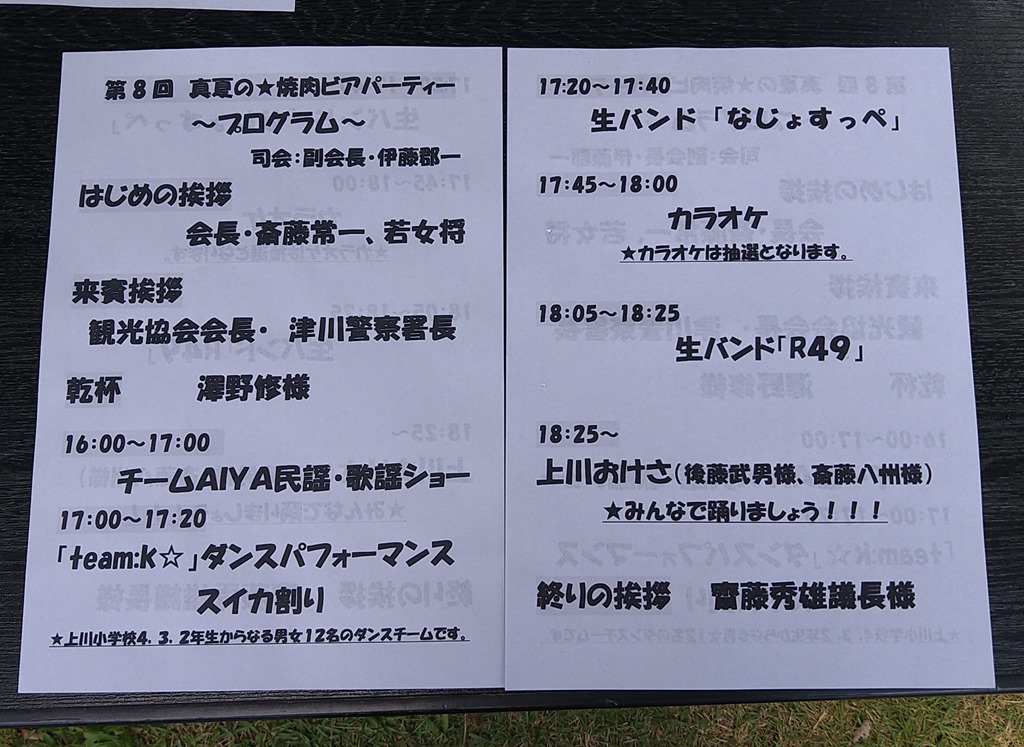 第8回 真夏の★焼肉ビアパーティー
～プログラム～
司会：副会長・伊藤郡一
はじめの挨拶
会長・斎藤常一、若女将
来賓挨拶
観光協会会長・ 津川警察署長
乾杯 澤野修様
16:00～17:00
チームAIYA民謡・歌謡ショー
17:00～17:20
「team:k☆」ダンスパフォーマンス
スイカ割り
★上川小学校4．3．2年生からなる男女12名のダンスチームです。
17:20～17:40
生バンド「なじょすっぺ」
17:45～18:00
カラオケ
★カラオケは抽選となります。
18:05～18:25
生バンド「R49」
18:25～
上川おけさ（後藤武男様、斎藤八州様）
★みんなで踊りましょう！！！
終りの挨拶 齋藤秀雄議長様